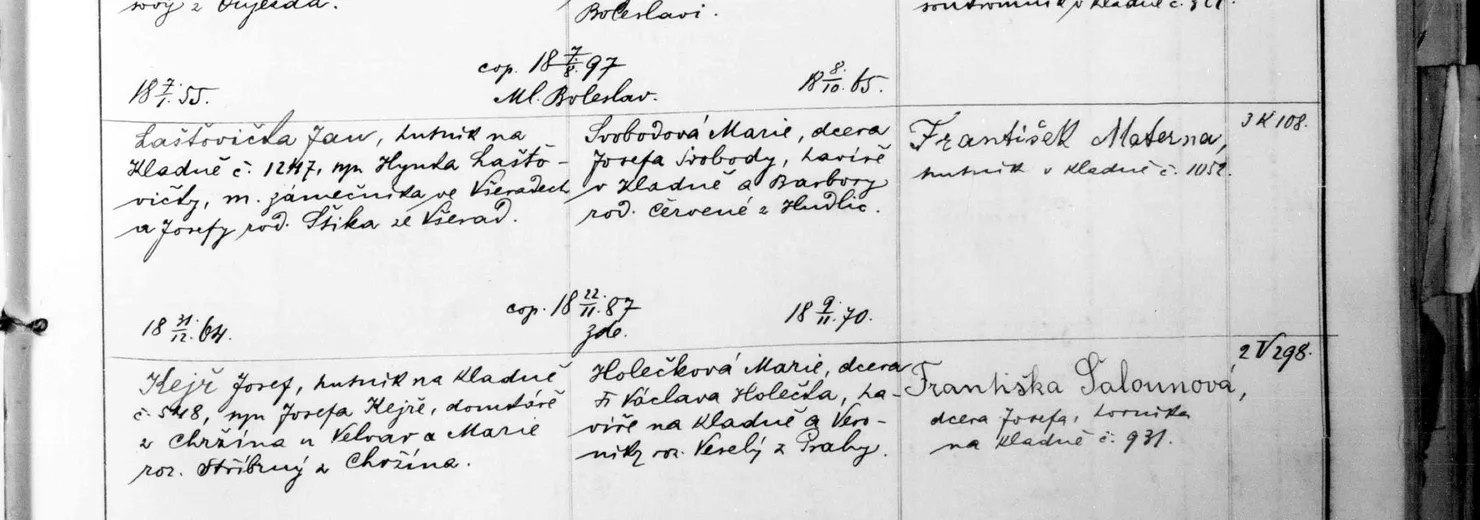 Boleslavi.
cop. 18 7/8. 97
Ml. Boleslav.
18 7/1. 55.
18 8/10. 65.
Laštovička Jan, hutník na
Kladně č. 1247, syn Hynka Lašto-
vičky, m. zámečníka ve Všeradech
a Josefy rod. Šika ze Všerad.
Svobodová Marie, dcera
Josefa Svobody, havíře
v Kladně a Barbory
rod. Červené z Hudlic.
František Materna,
hutník v Kladně č. 1052.
3 K 108.
18 31/12. 64.
cop. 18 22/11. 87
zde.
18 9/11. 70.
Kejř Josef, hutník na Kladně
č. 548, syn Josefa Kejře, domkáře
z Chržína u Velvar a Marie
roz. Stříbrný z Chržína.
Holečková Marie, dcera
Václava Holečka, ha-
víře na Kladně a Vero-
niky roz. Veselý z Prahy.
Františka Šalounová,
dcera Josefa, horníka
na Kladně č. 931.
2 V 298.